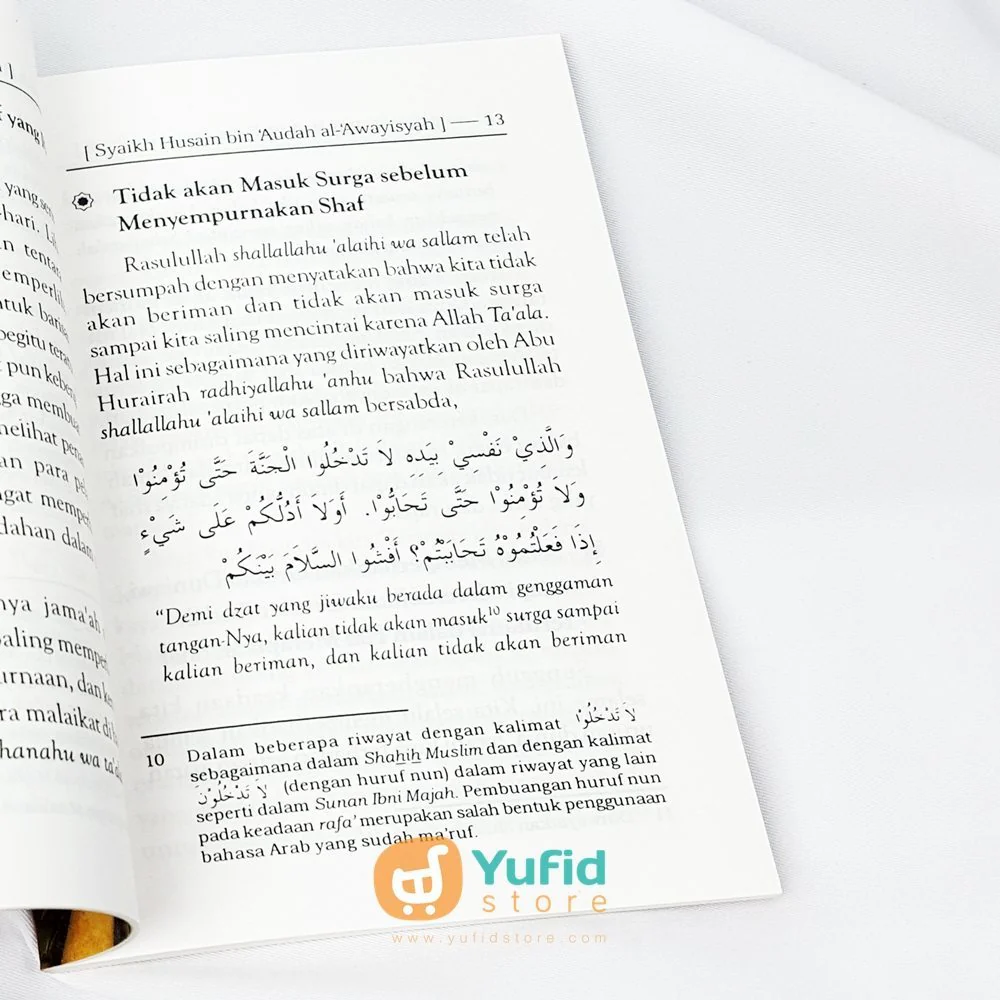 [ Syaikh Husain bin 'Audah al-'Awayisyah ] — 13
Tidak akan Masuk Surga sebelum
Menyempurnakan Shaf
Rasulullah shallallahu 'alaihi wa sallam telah
bersumpah dengan menyatakan bahwa kita tidak
akan beriman dan tidak akan masuk surga
sampai kita saling mencintai karena Allah Ta'ala.
Hal ini sebagaimana yang diriwayatkan oleh Abu
Hurairah radhiyallahu 'anhu bahwa Rasulullah
shallallahu 'alaihi wa sallam bersabda,
وَالَّذِيْ نَفْسِيْ بِيَدِهِ لاَ تَدْخُلُوا الْجَنَّةَ حَتَّى تُؤْمِنُوْا
وَلاَ تُؤْمِنُوْا حَتَّى تَحَابُّوْا. أَوَلاَ أَدُلُّكُمْ عَلَى شَيْءٍ
إِذَا فَعَلْتُمُوْهُ تَحَابَبْتُمْ؟ أَفْشُوا السَّلاَمَ بَيْنَكُمْ
“Demi dzat yang jiwaku berada dalam genggaman
tangan-Nya, kalian tidak akan masuk10 surga sampai
kalian beriman, dan kalian tidak akan beriman
10 Dalam beberapa riwayat dengan kalimat لاَ تَدْخُلُوْا
sebagaimana dalam Shahih Muslim dan dengan kalimat
لاَ تَدْخُلُوْنَ (dengan huruf nun) dalam riwayat yang lain
seperti dalam Sunan Ibni Majah. Pembuangan huruf nun
pada keadaan rafa' merupakan salah bentuk penggunaan
bahasa Arab yang sudah ma'ruf.
Yufid
store
www.yufidstore.com